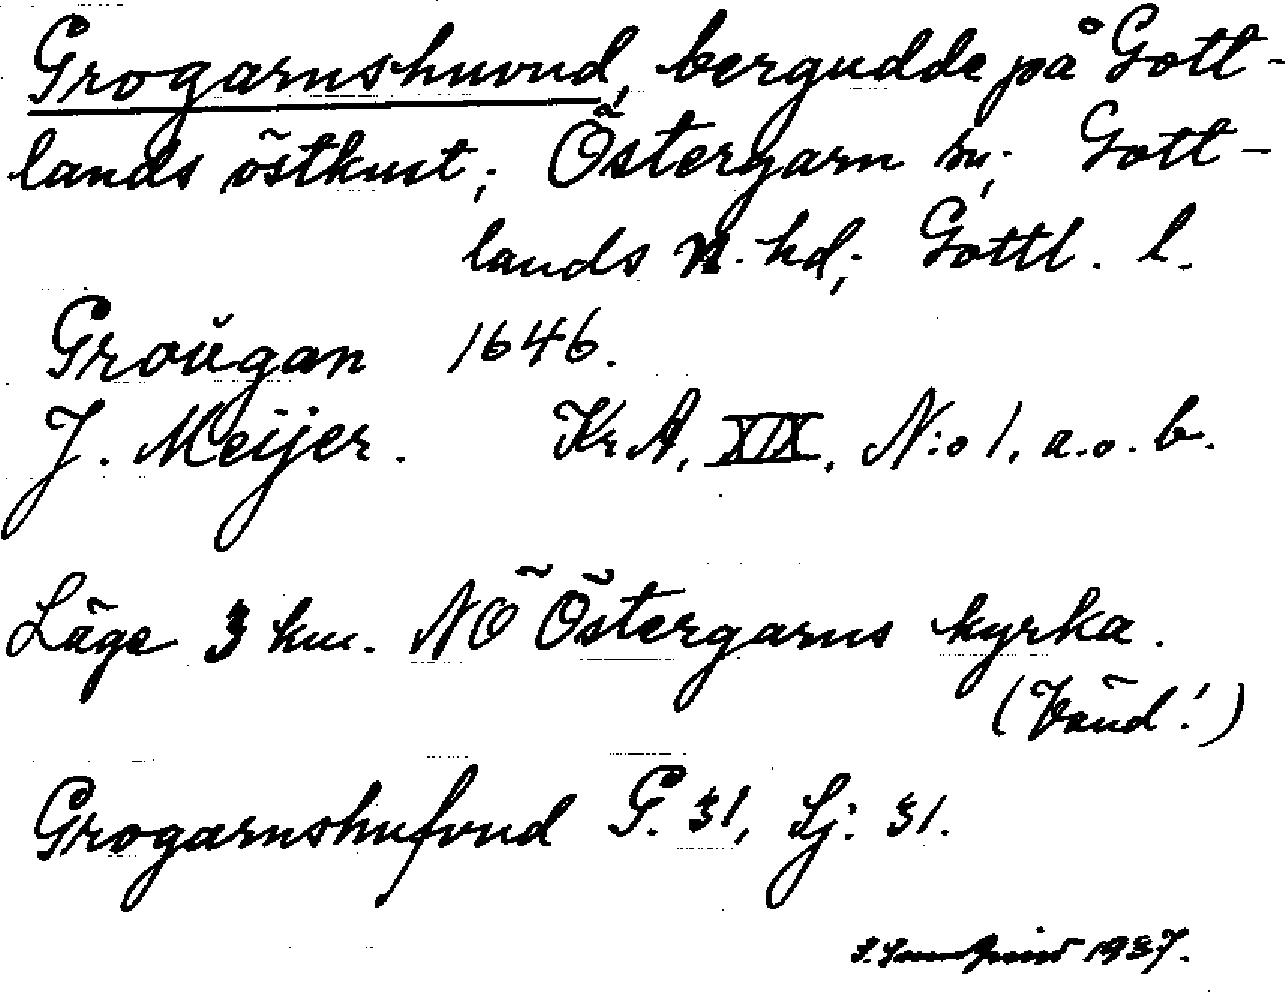 Grogarnshuvud, bergudde på Gott-
lands östkust; Östergarn sn; Gott-
lands n. hd; Gottl. l.
Groŭgan 1646.
J. Meijer. Kr A, XIX, N:o 1, a.o. b.
Läge 3 km. NÖ Östergarns kyrka.
(Vänd!)
Grogarnshufvud G. 31, Lj: 31.
1937.